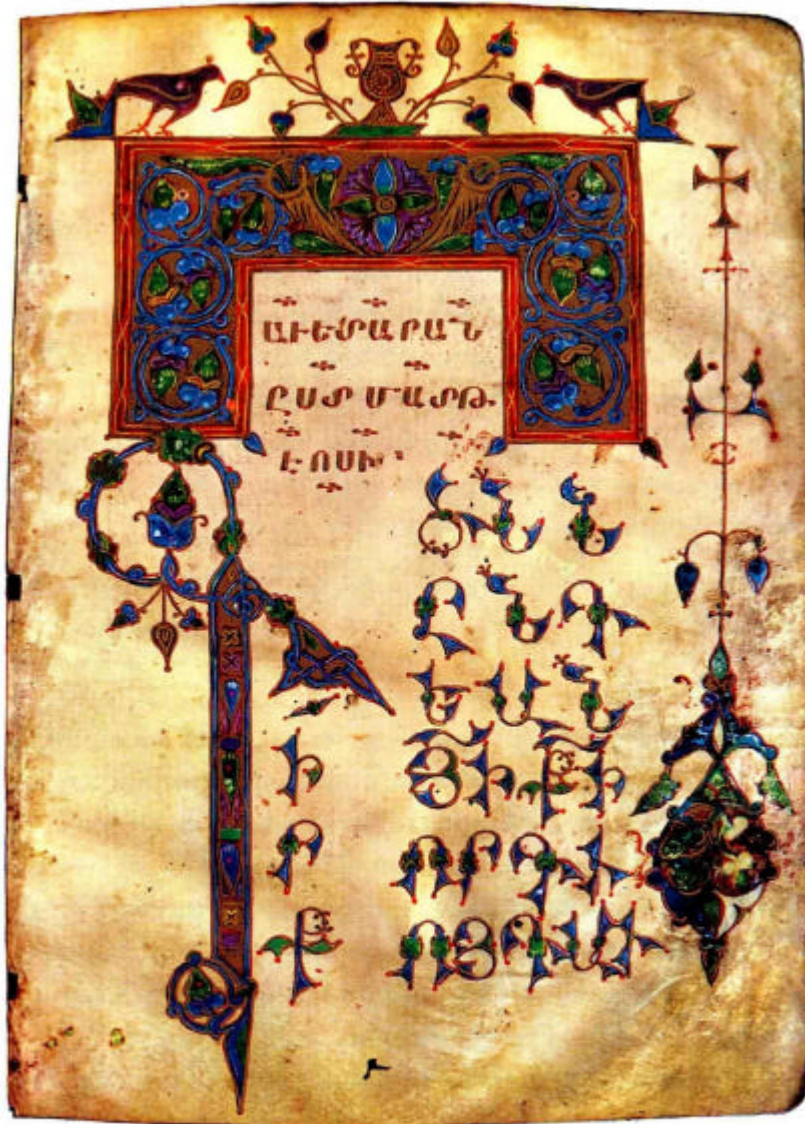 ԱՒԵՏԱՐԱՆ
ԸՍՏ ՄԱՏԹ
ԷՈՍԻ
Գ
Ի
Ր
Ք
ԾՆՆ
ԸՆԴ
ԵԱՆ
ՅԻ ՔԻ
ՈՐԴՒ